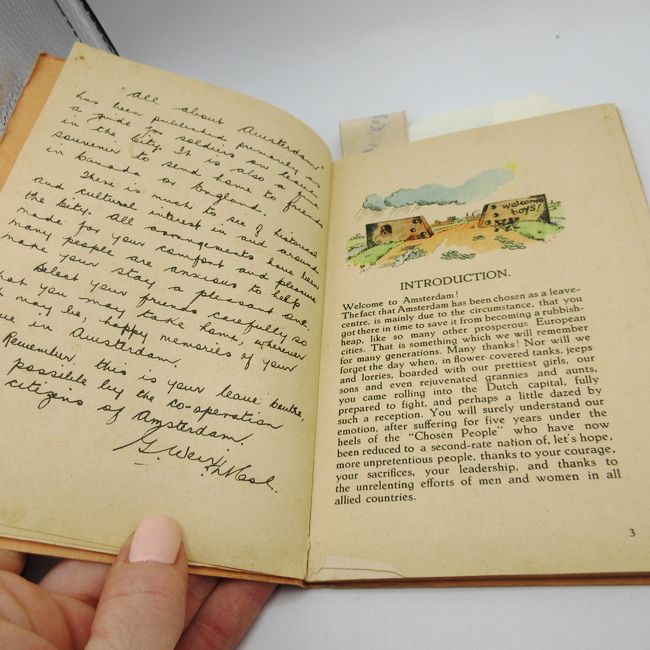 "All about Amsterdam"
has been published primarily as
a guide for soldiers on leave
in the City. It is also a fine
souvenir to send home to friends
in Canada or England.
There is much to see of historical
and cultural interest in and around
the City. All arrangements have been
made for your comfort and pleasure
many people are anxious to help
make your stay a pleasant one.
Select your friends carefully so
that you may take home, wherever
it may be, happy memories of your
in Amsterdam.
Remember this is your leave centre,
possible by the co-operation
citizens of Amsterdam.
G. Weir
welcome
boys!
INTRODUCTION.
Welcome to Amsterdam!
The fact that Amsterdam has been chosen as a leave-
centre, is mainly due to the circumstance, that you
got there in time to save it from becoming a rubbish-
heap, like so many other prosperous European
cities. That is something which we will remember
for many generations. Many thanks! Nor will we
forget the day when, in flower covered tanks, jeeps
and lorries, boarded with our prettiest girls, our
sons and even rejuvenated grannies and aunts,
you came rolling into the Dutch capital, fully
prepared to fight, and perhaps a little dazed by
such a reception. You will surely understand our
emotion, after suffering for five years under the
heels of the "Chosen People" who have now
been reduced to a second-rate nation of, let's hope,
more unpretentious people, thanks to your courage,
your sacrifices, your leadership, and thanks to
the unrelenting efforts of men and women in all
allied countries.
3